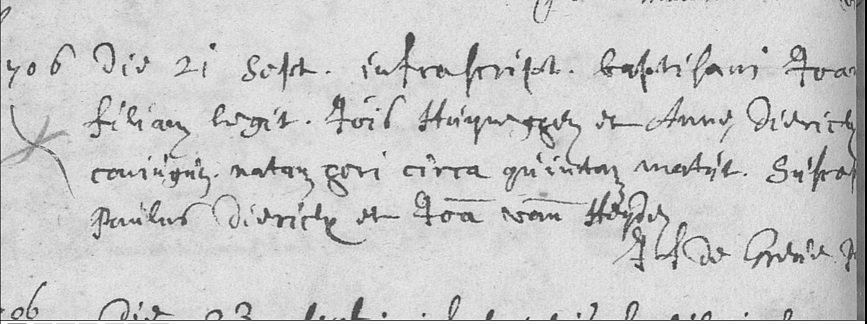 706 Die 21 Sept. infrascript. baptisavi Joa
filiam legit. Jois Huyneggen et Anne Diericx
coniugum. natam heri circa quintam matut. Susce
Paulus Diericx et Joā van Heyden
de Greve
06 Die 23